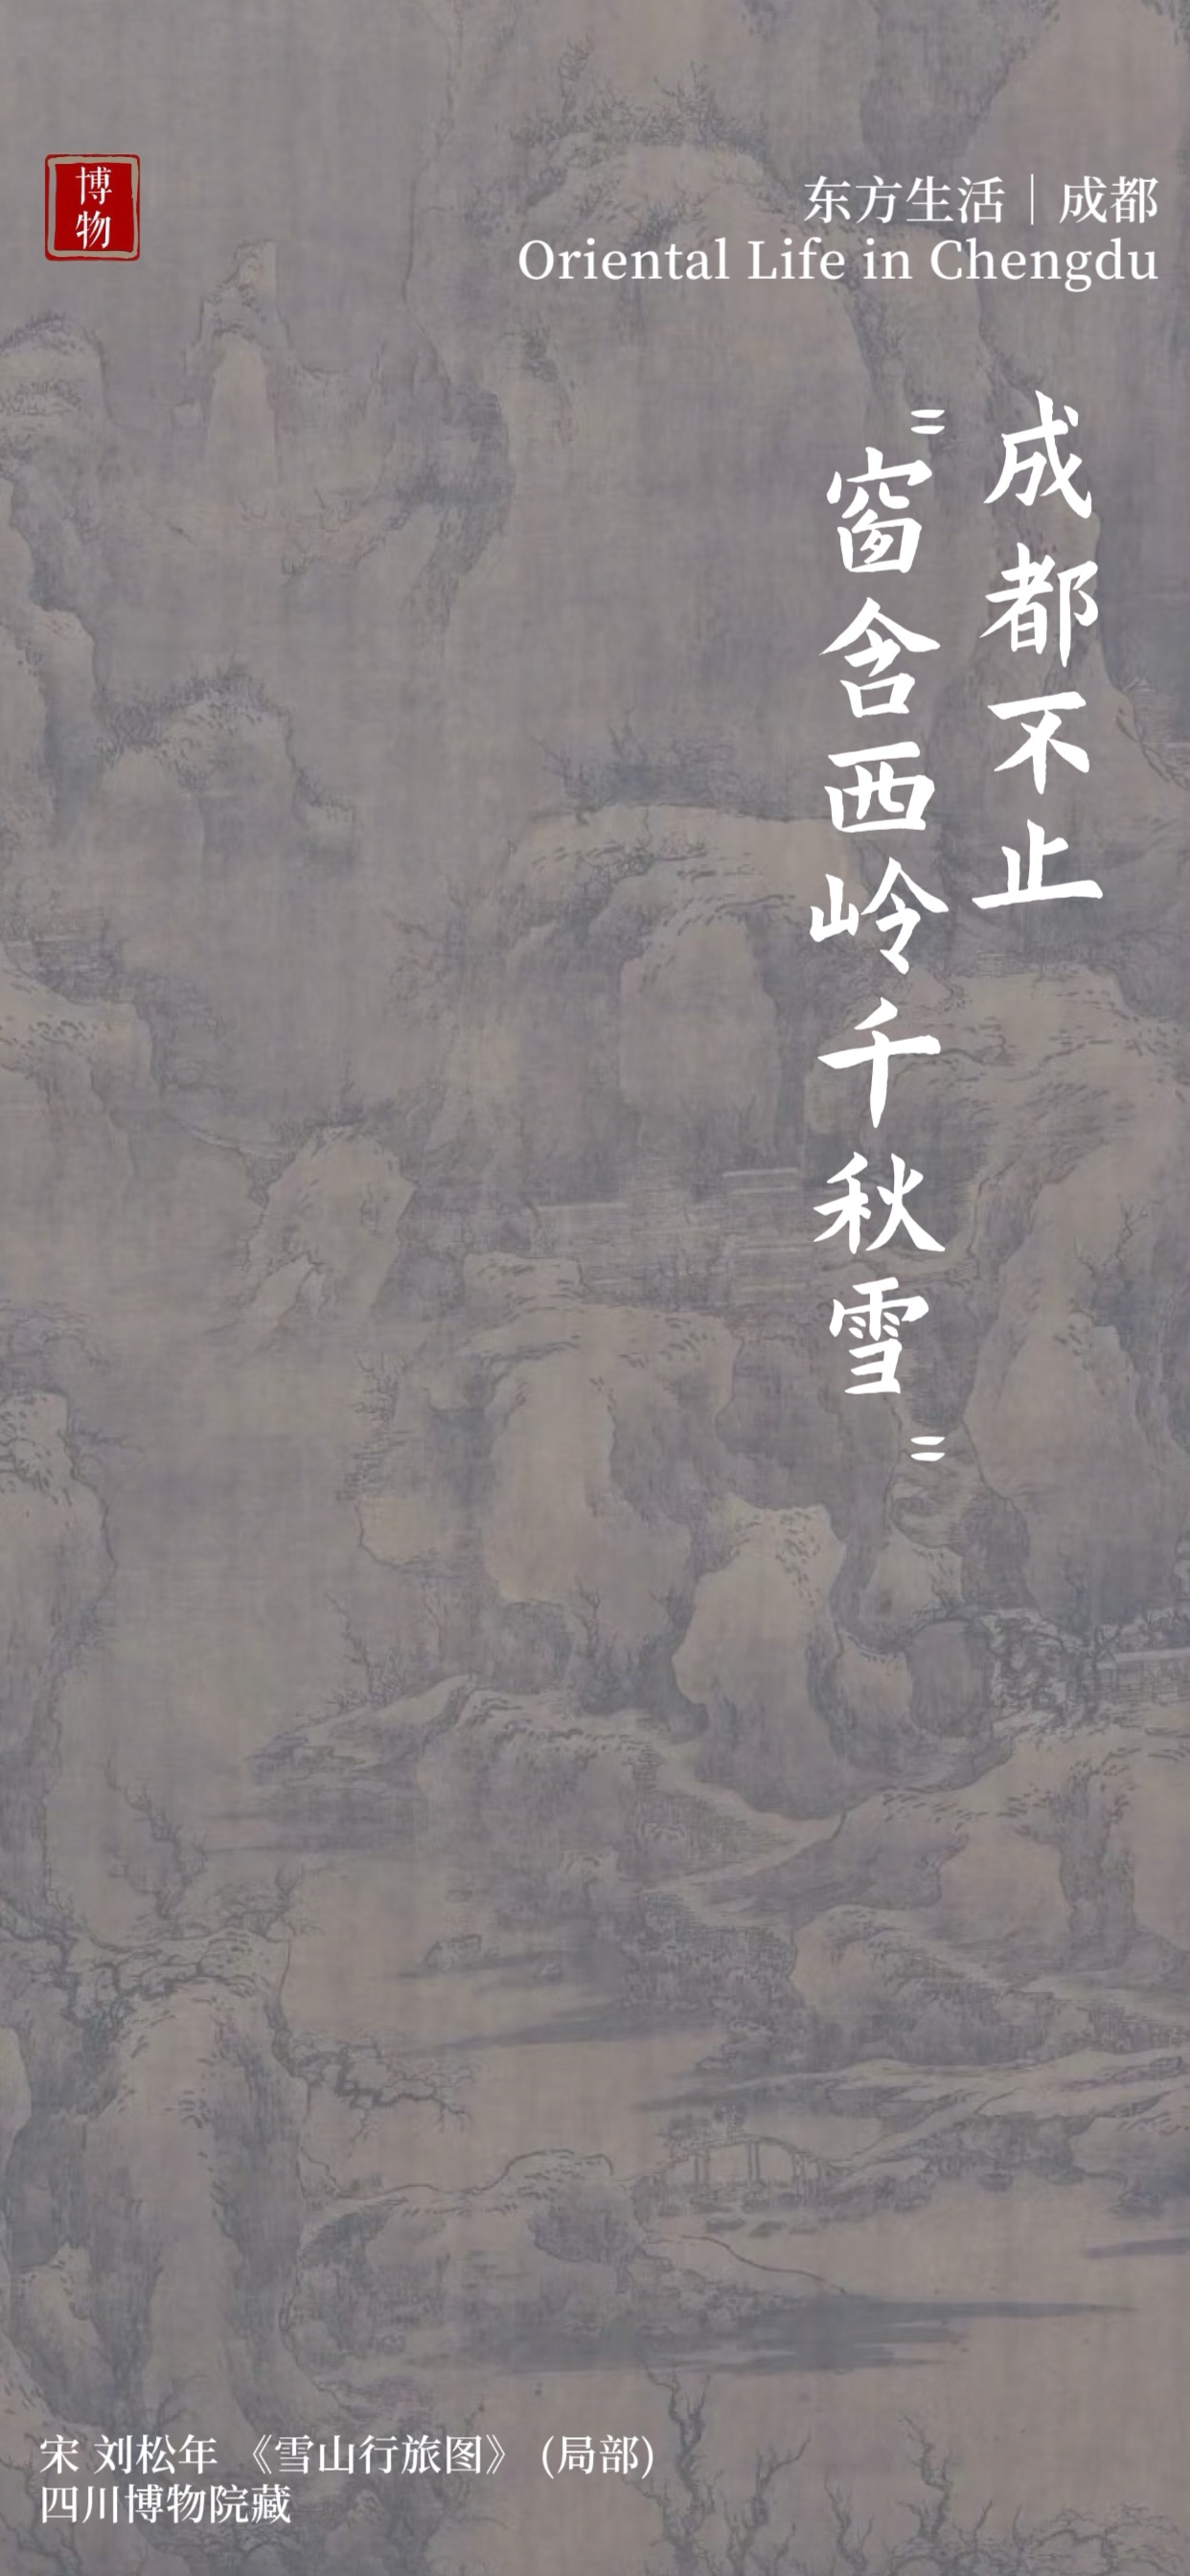 博物
东方生活｜成都
Oriental Life in Chengdu
成都不止
“窗含西岭千秋雪”
宋 刘松年 《雪山行旅图》 (局部)
四川博物院藏